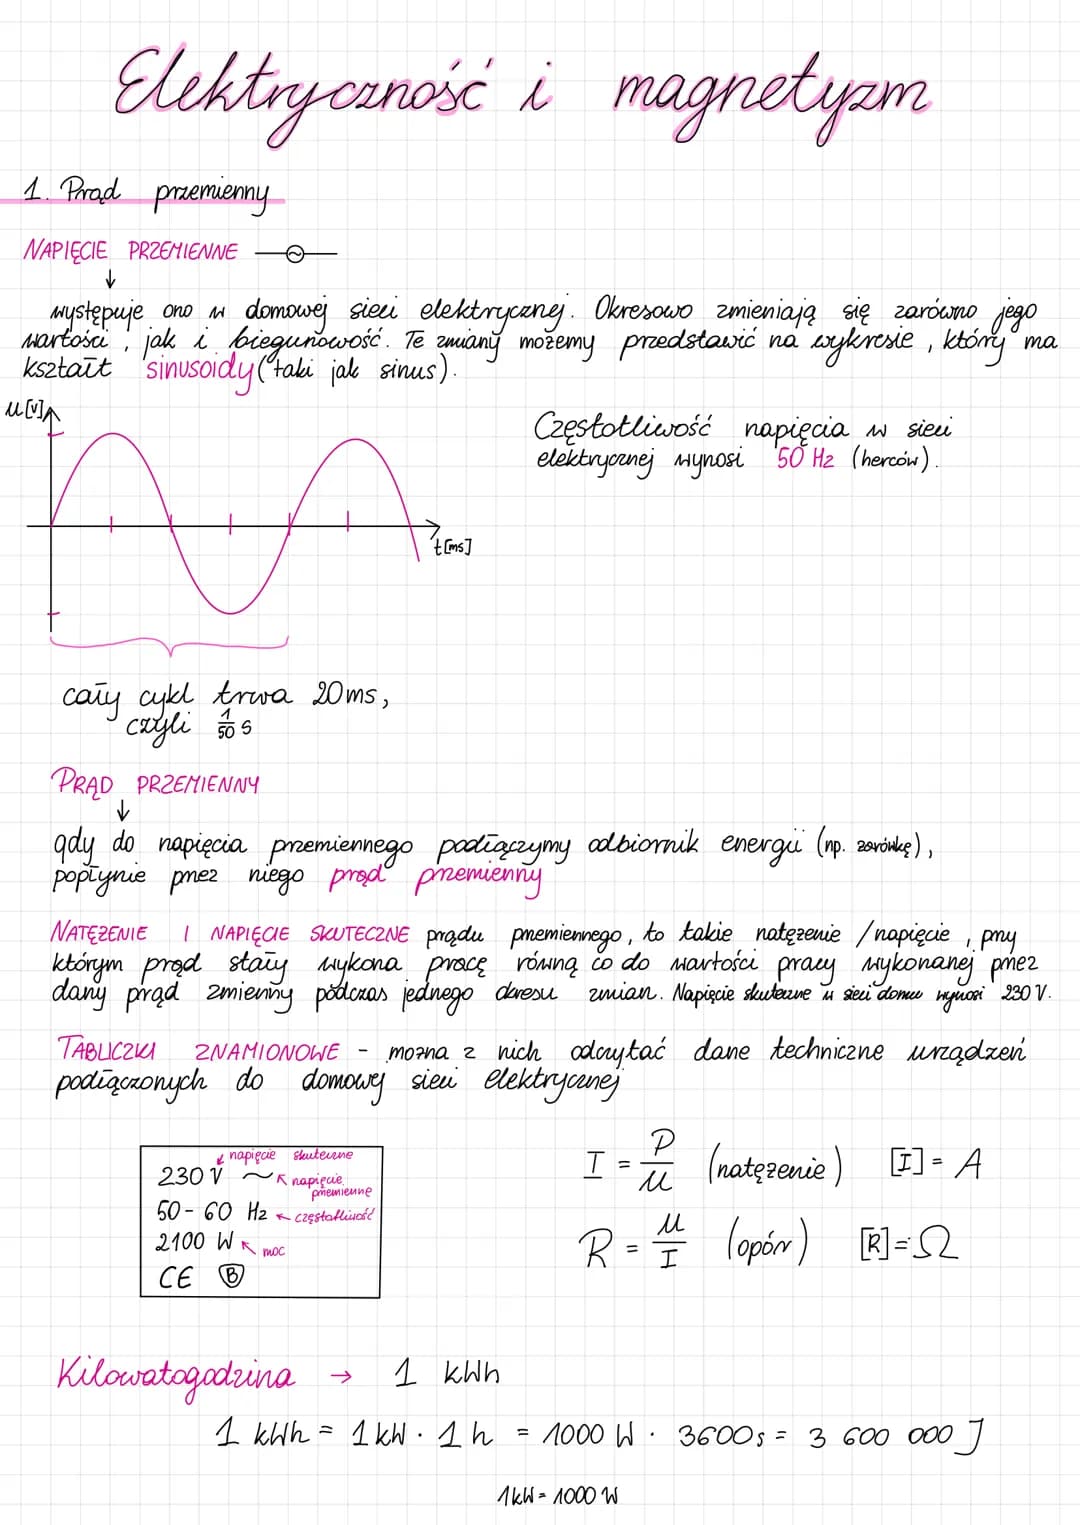 Elektryczność i magnetyzm
1. Prąd przemienny
NAPIĘCIE PRZEMIENNE
występuje ono w domowej sieci elektrycznej. Okresowo zmieniają się zarówno jego
wartości, jak i biegunowość. Te zmiany możemy przedstawić na wykresie, który ma
kształt sinusoidy (taki jak sinus).
u[V]
Częstotliwość napięcia w sieci
elektrycznej wynosi 50 Hz (herców).
t[ms]
cały cykl trwa 20ms,
czyli 1/50 s
PRĄD PRZEMIENNY
gdy do napięcia przemiennego podłączymy odbiornik energii (np. żarówkę),
popłynie przez niego prąd przemienny
NATĘŻENIE I NAPIĘCIE SKUTECZNE prądu przemiennego, to takie natężenie/napięcie, przy
którym prąd stały wykona pracę równą co do wartości pracy wykonanej przez
dany prąd zmienny podczas jednego okresu zmian. Napięcie skuteczne w sieci domow wynosi 230 V.
TABLICZKI ZNAMIONOWE - można z nich odczytać dane techniczne urządzeń
podłączonych do domowej sieci elektrycznej
napięcie skuteczne
230 V ~ napięcie
przemienne
50-60 Hz częstotliwość
2100 W moc
CE B
I = P/U (natężenie) [I] = A
R = U/I (opór) [R] = Ω
Kilowatogodzina → 1 kWh
1 kWh = 1 kW · 1 h = 1000 W · 3600s = 3 600 000 J
1kW = 1000 W